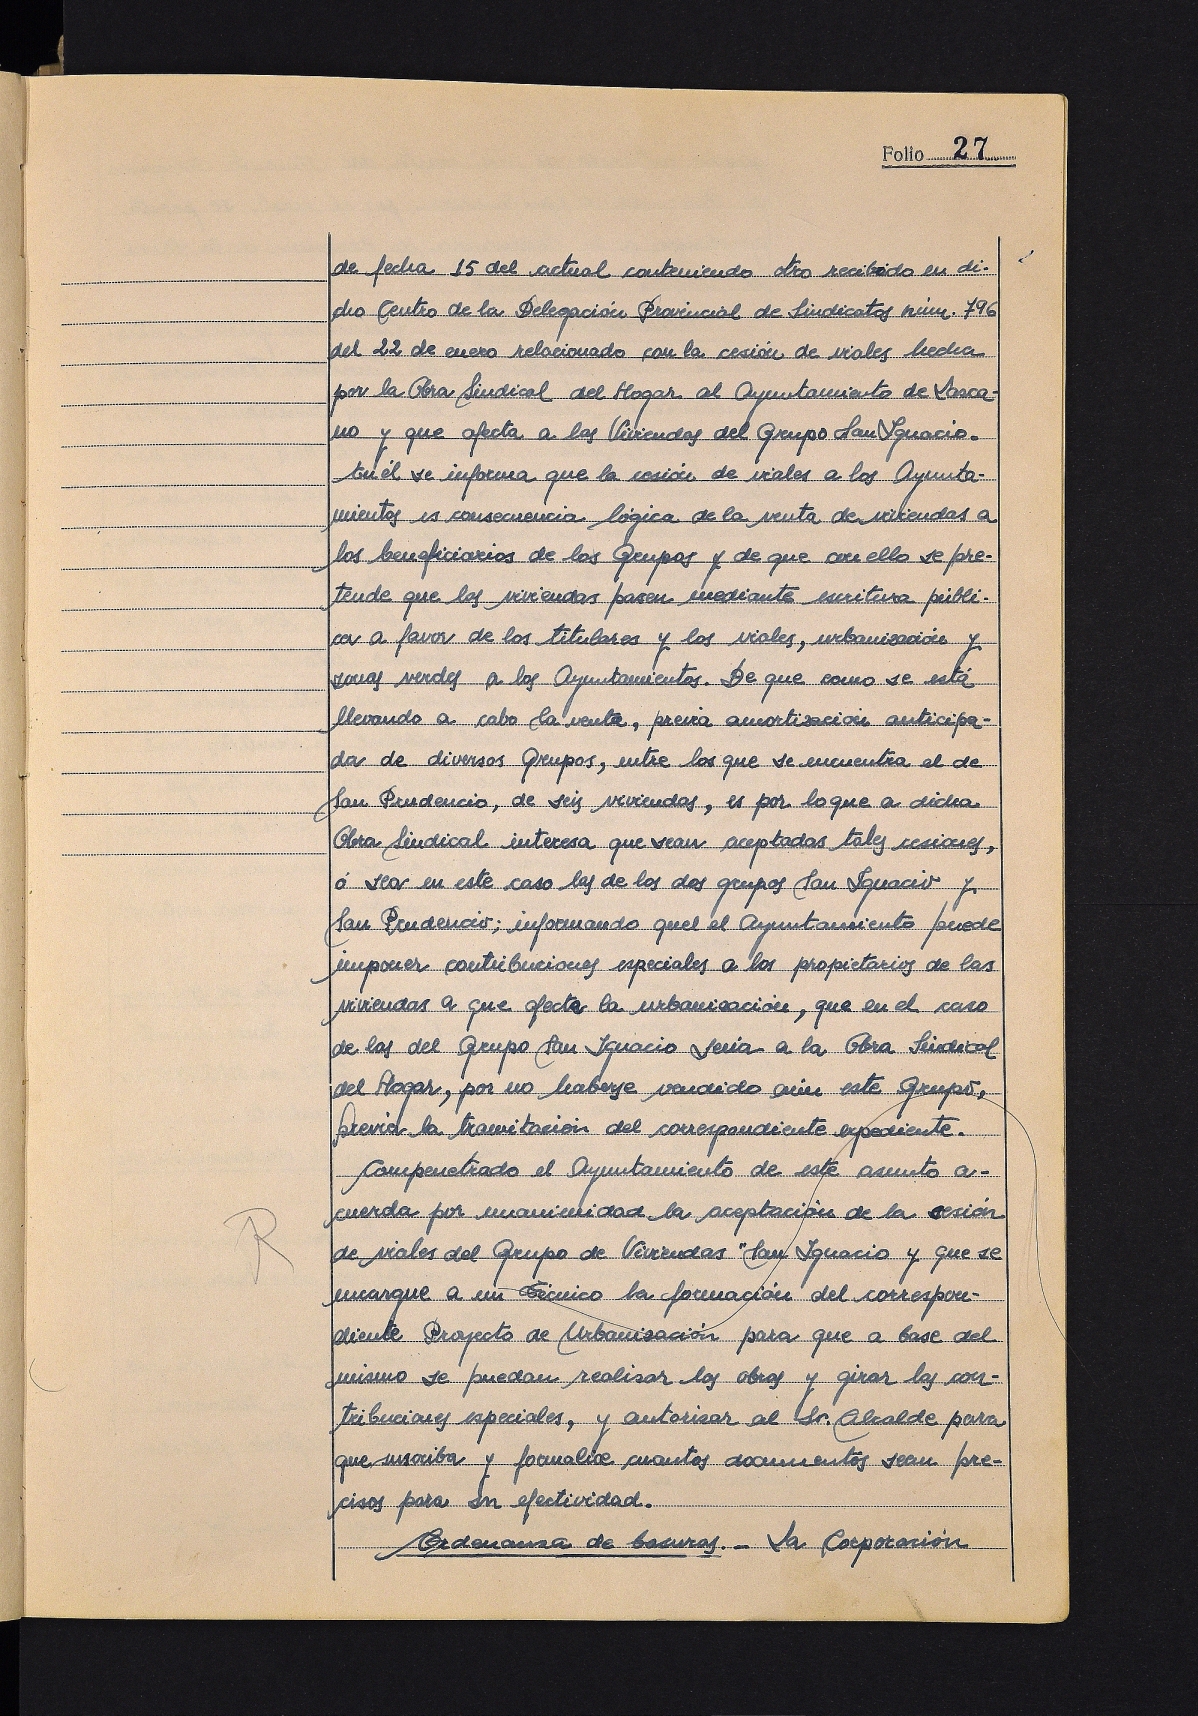 Folio 27
de fecha 15 del actual conteniendo otro recibido en di-
cho Centro de la Delegación Provincial de Sindicatos núm. 796
del 22 de enero relacionado con la cesión de viales hecha
por la Obra Sindical del Hogar al Ayuntamiento de Lasca-
no y que afecta a las Viviendas del Grupo San Ignacio.
En él se informa que la cesión de viales a los Ayunta-
mientos es consecuencia lógica de la venta de viviendas a
los beneficiarios de los Grupos y de que con ello se pre-
tende que las viviendas pasen mediante escritura públi-
ca a favor de los titulares y los viales, urbanización y
zonas verdes a los Ayuntamientos. De que como se está
llevando a cabo la venta, previa amortización anticipa-
da de diversos Grupos, entre los que se encuentra el de
San Prudencio, de seis viviendas, es por lo que a dicha
Obra Sindical interesa que sean aceptadas tales cesiones,
ó sea en este caso las de los dos grupos San Ignacio y
San Prudencio; informando quel el Ayuntamiento puede
imponer contribuciones especiales a los propietarios de las
viviendas a que afecta la urbanización, que en el caso
de las del Grupo San Ignacio sería a la Obra Sindical
del Hogar, por no haberse vendido aún este Grupo,
previa la tramitación del correspondiente expediente.
Compenetrado el Ayuntamiento de este asunto a-
cuerda por unanimidad la aceptación de la cesión
de viales del Grupo de Viviendas "San Ignacio y que se
encargue a un Técnico la formación del correspon-
diente Proyecto de Urbanización para que a base del
mismo se puedan realizar las obras y girar las con-
tribuciones especiales, y autorizar al Sr. Alcalde para
que suscriba y formalice cuantos documentos sean pre-
cisos para su efectividad.
Ordenanza de basuras. - La Corporación
R